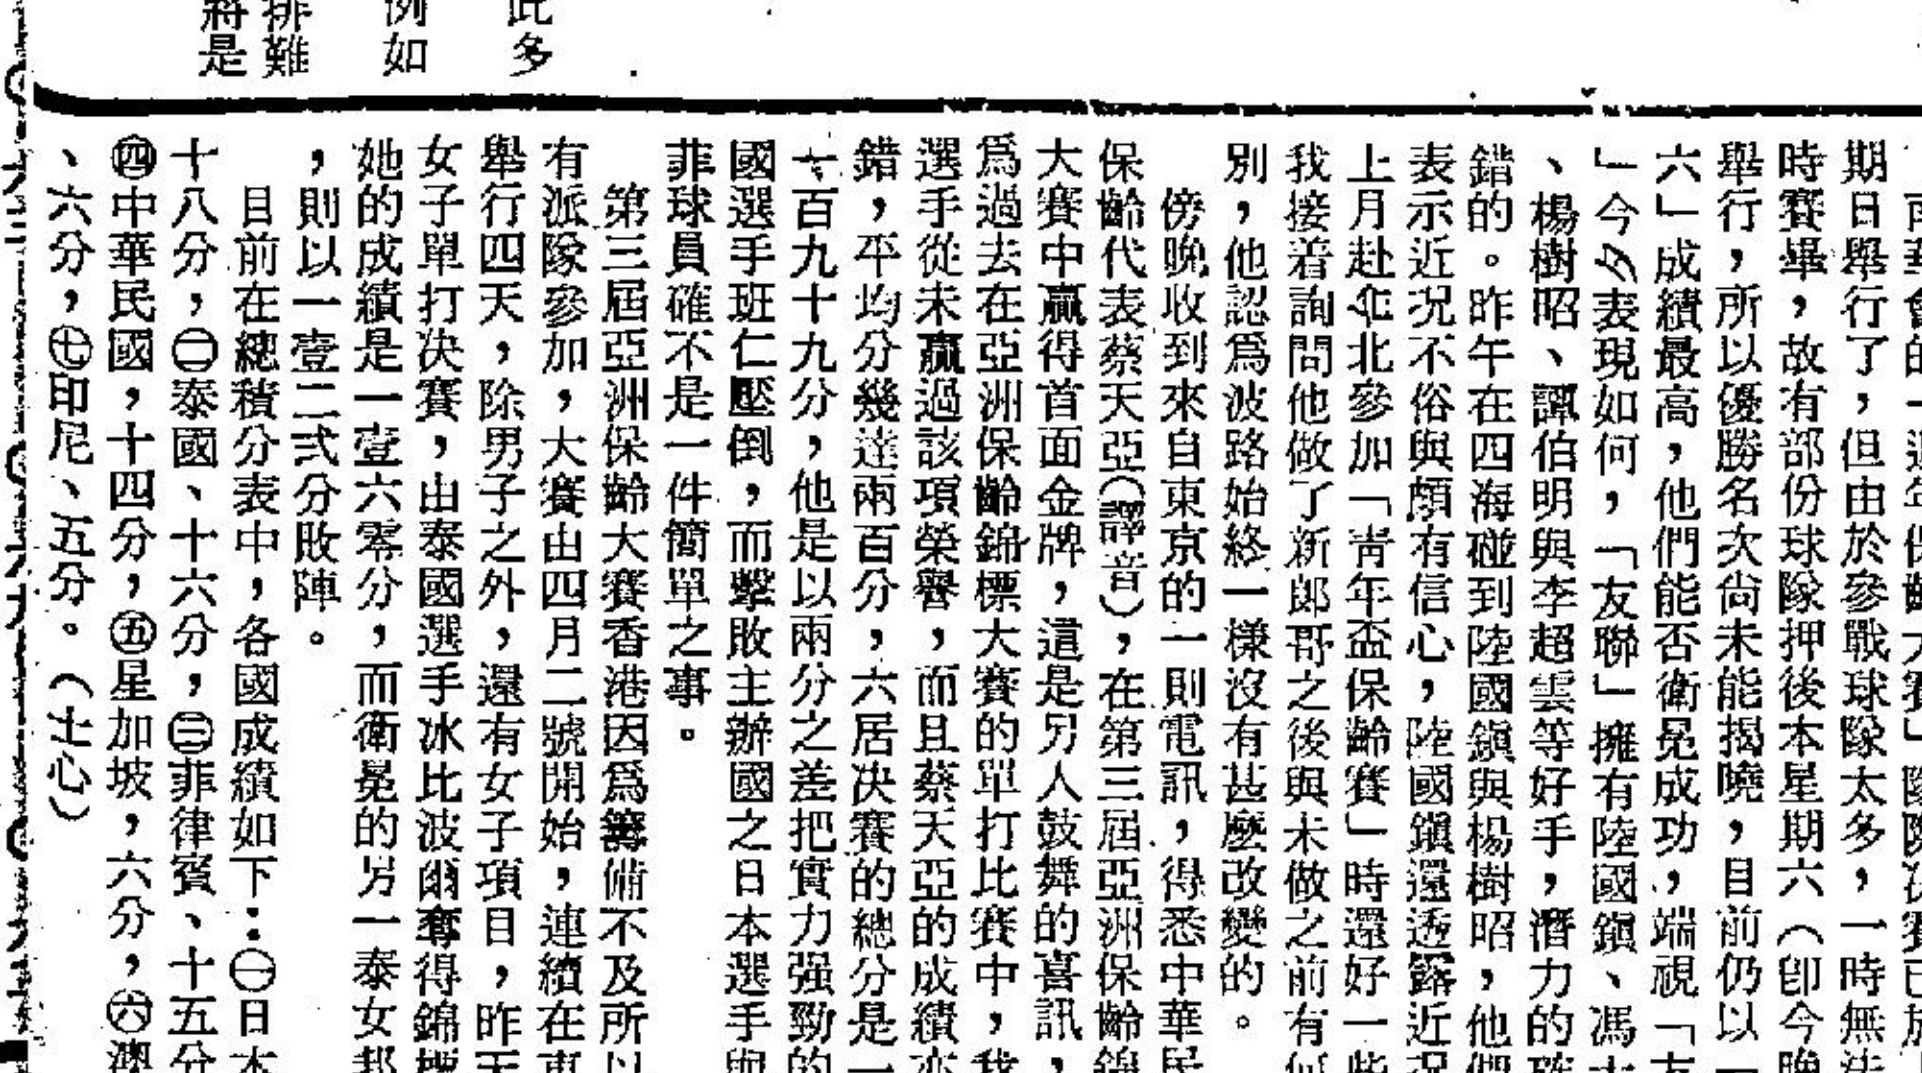 此多
例如
排難
將是
期日舉行了，但由於參戰球隊太多，一時無法
時賽畢，故有部份球隊押後本星期六（卽今晚
舉行，所以優勝名次尙未能揭曉，目前仍以「
六」成績最高，他們能否衛冕成功，端視「友
」今仗表現如何，「友聯」擁有陸國鎭、馮
、楊樹昭、譚伯明與李超雲等好手，潛力的確
錯的。昨午在四海碰到陸國鎭與楊樹昭，他們
表示近況不俗與頗有信心，陸國鎭還透露近況
上月赴台北參加「靑年盃保齡賽」時還好一些
我接着詢問他做了新郎哥之後與未做之前有何
別，他認爲波路始終一樣沒有甚麼改變的。
傍晚收到來自東京的一則電訊，得悉中華民
保齡代表蔡天亞（譯音），在第三屆亞洲保齡錦
大賽中贏得首面金牌，這是另人鼓舞的喜訊，
爲過去在亞洲保齡錦標大賽的單打比賽中，我
選手從未贏過該項榮譽，而且蔡天亞的成績亦
錯，平均分幾達兩百分，六居決賽的總分是一
七百九十九分，他是以兩分之差把實力强勁的
國選手班仁壓倒，而擊敗主辦國之日本選手與
菲球員確不是一件簡單之事。
第三屆亞洲保齡大賽香港因爲籌備不及所以
有派隊參加，大賽由四月二號開始，連續在東
舉行四天，除男子之外，還有女子項目，昨天
女子單打決賽，由泰國選手冰比波爾奪得錦標
她的成績是一壹六零分，而衛冕的另一泰女郞
，則以一壹二弍分敗陣。
目前在總積分表中，各國成績如下：㊀日本
十八分，㊁泰國、十六分，㊂菲律賓、十五分
㊃中華民國，十四分，㊄星加坡，六分，㊅澳
、六分，㊆印尼、五分。（士心）